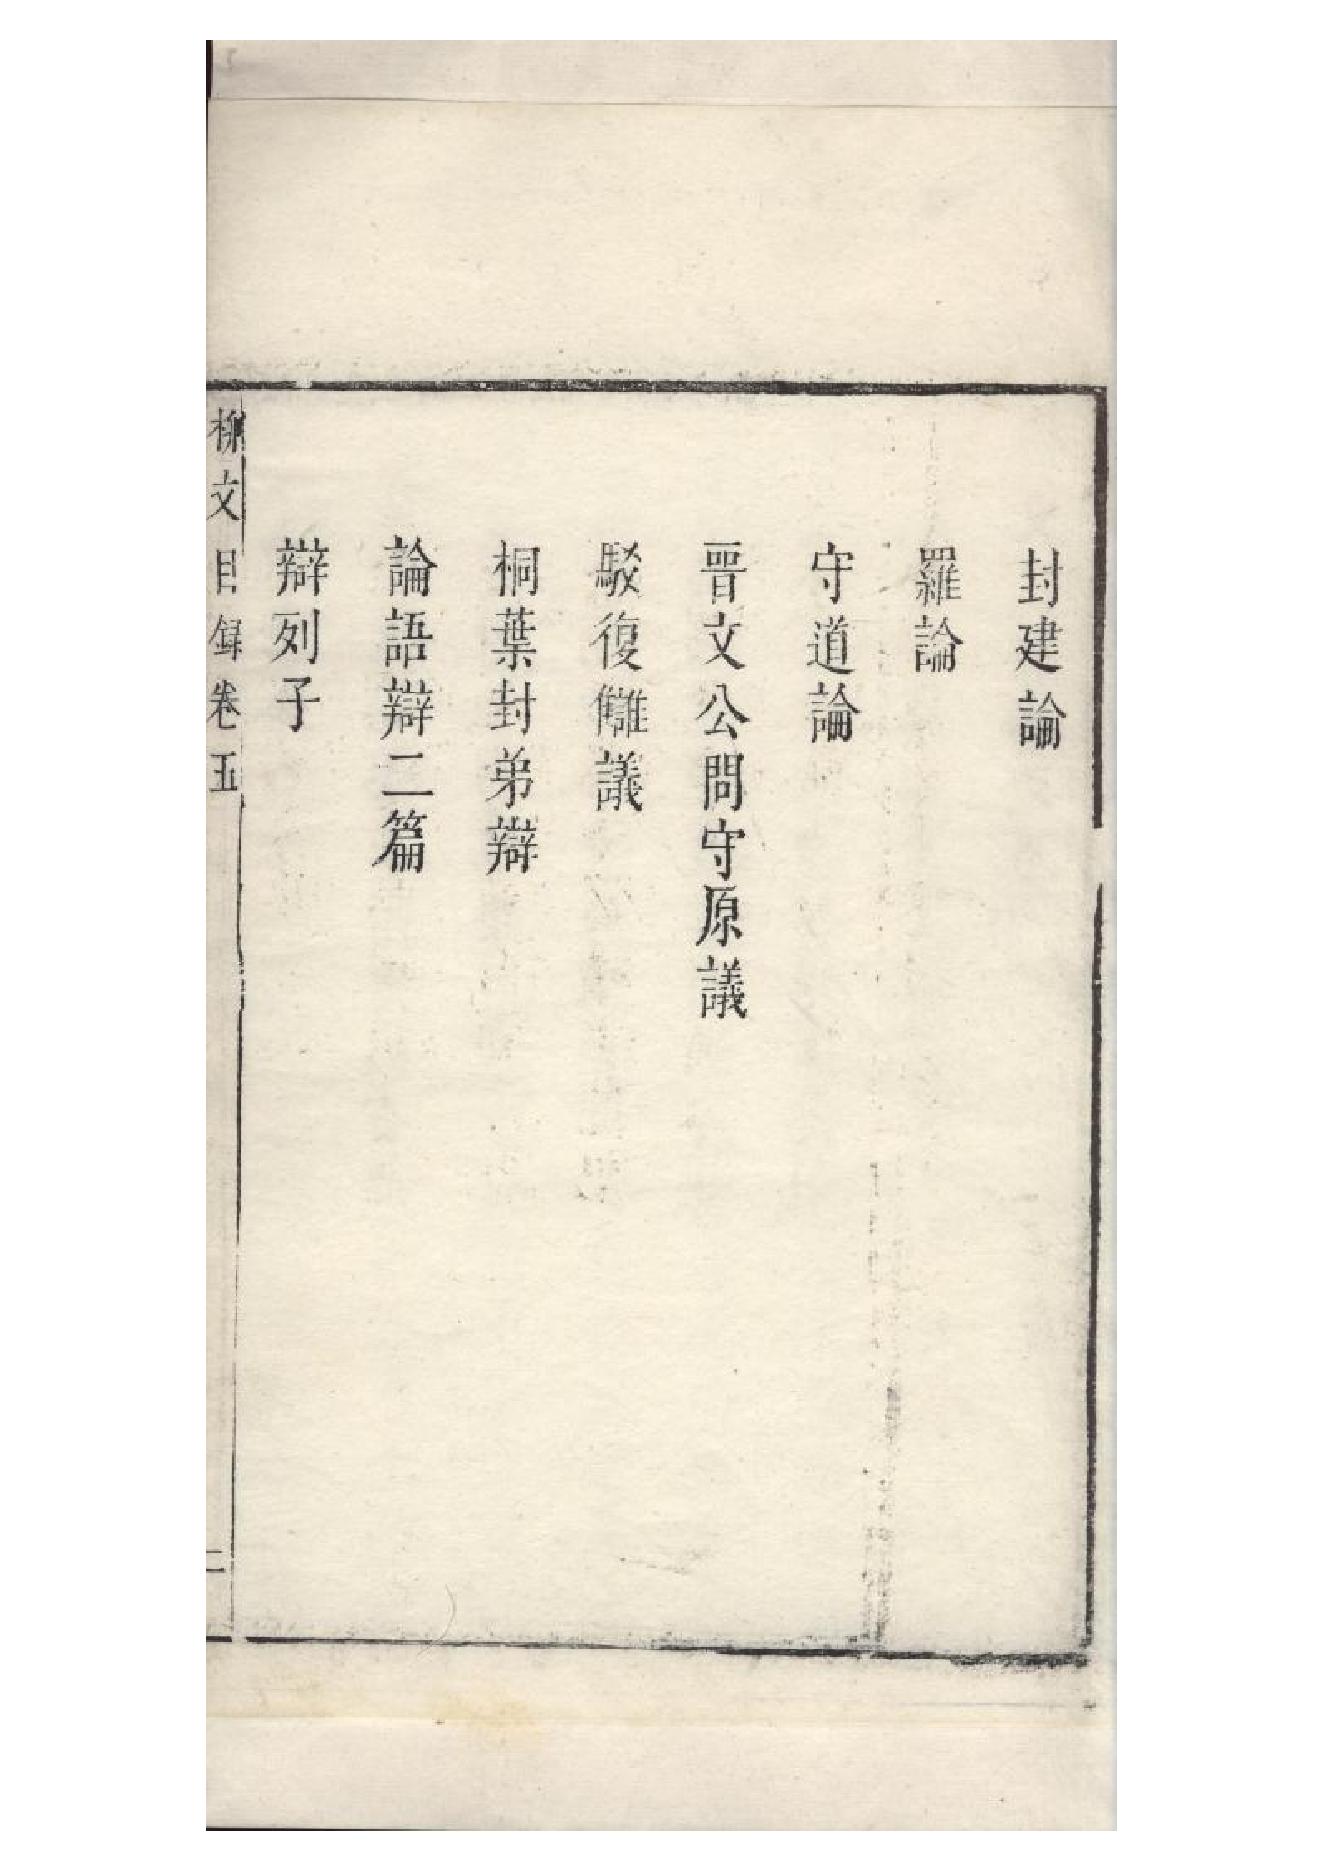 封建論
羅論
守道論
晉文公問守原議
駁復讎議
桐葉封弟辯
論語辯二篇
辯列子
柳文目錄卷五
二